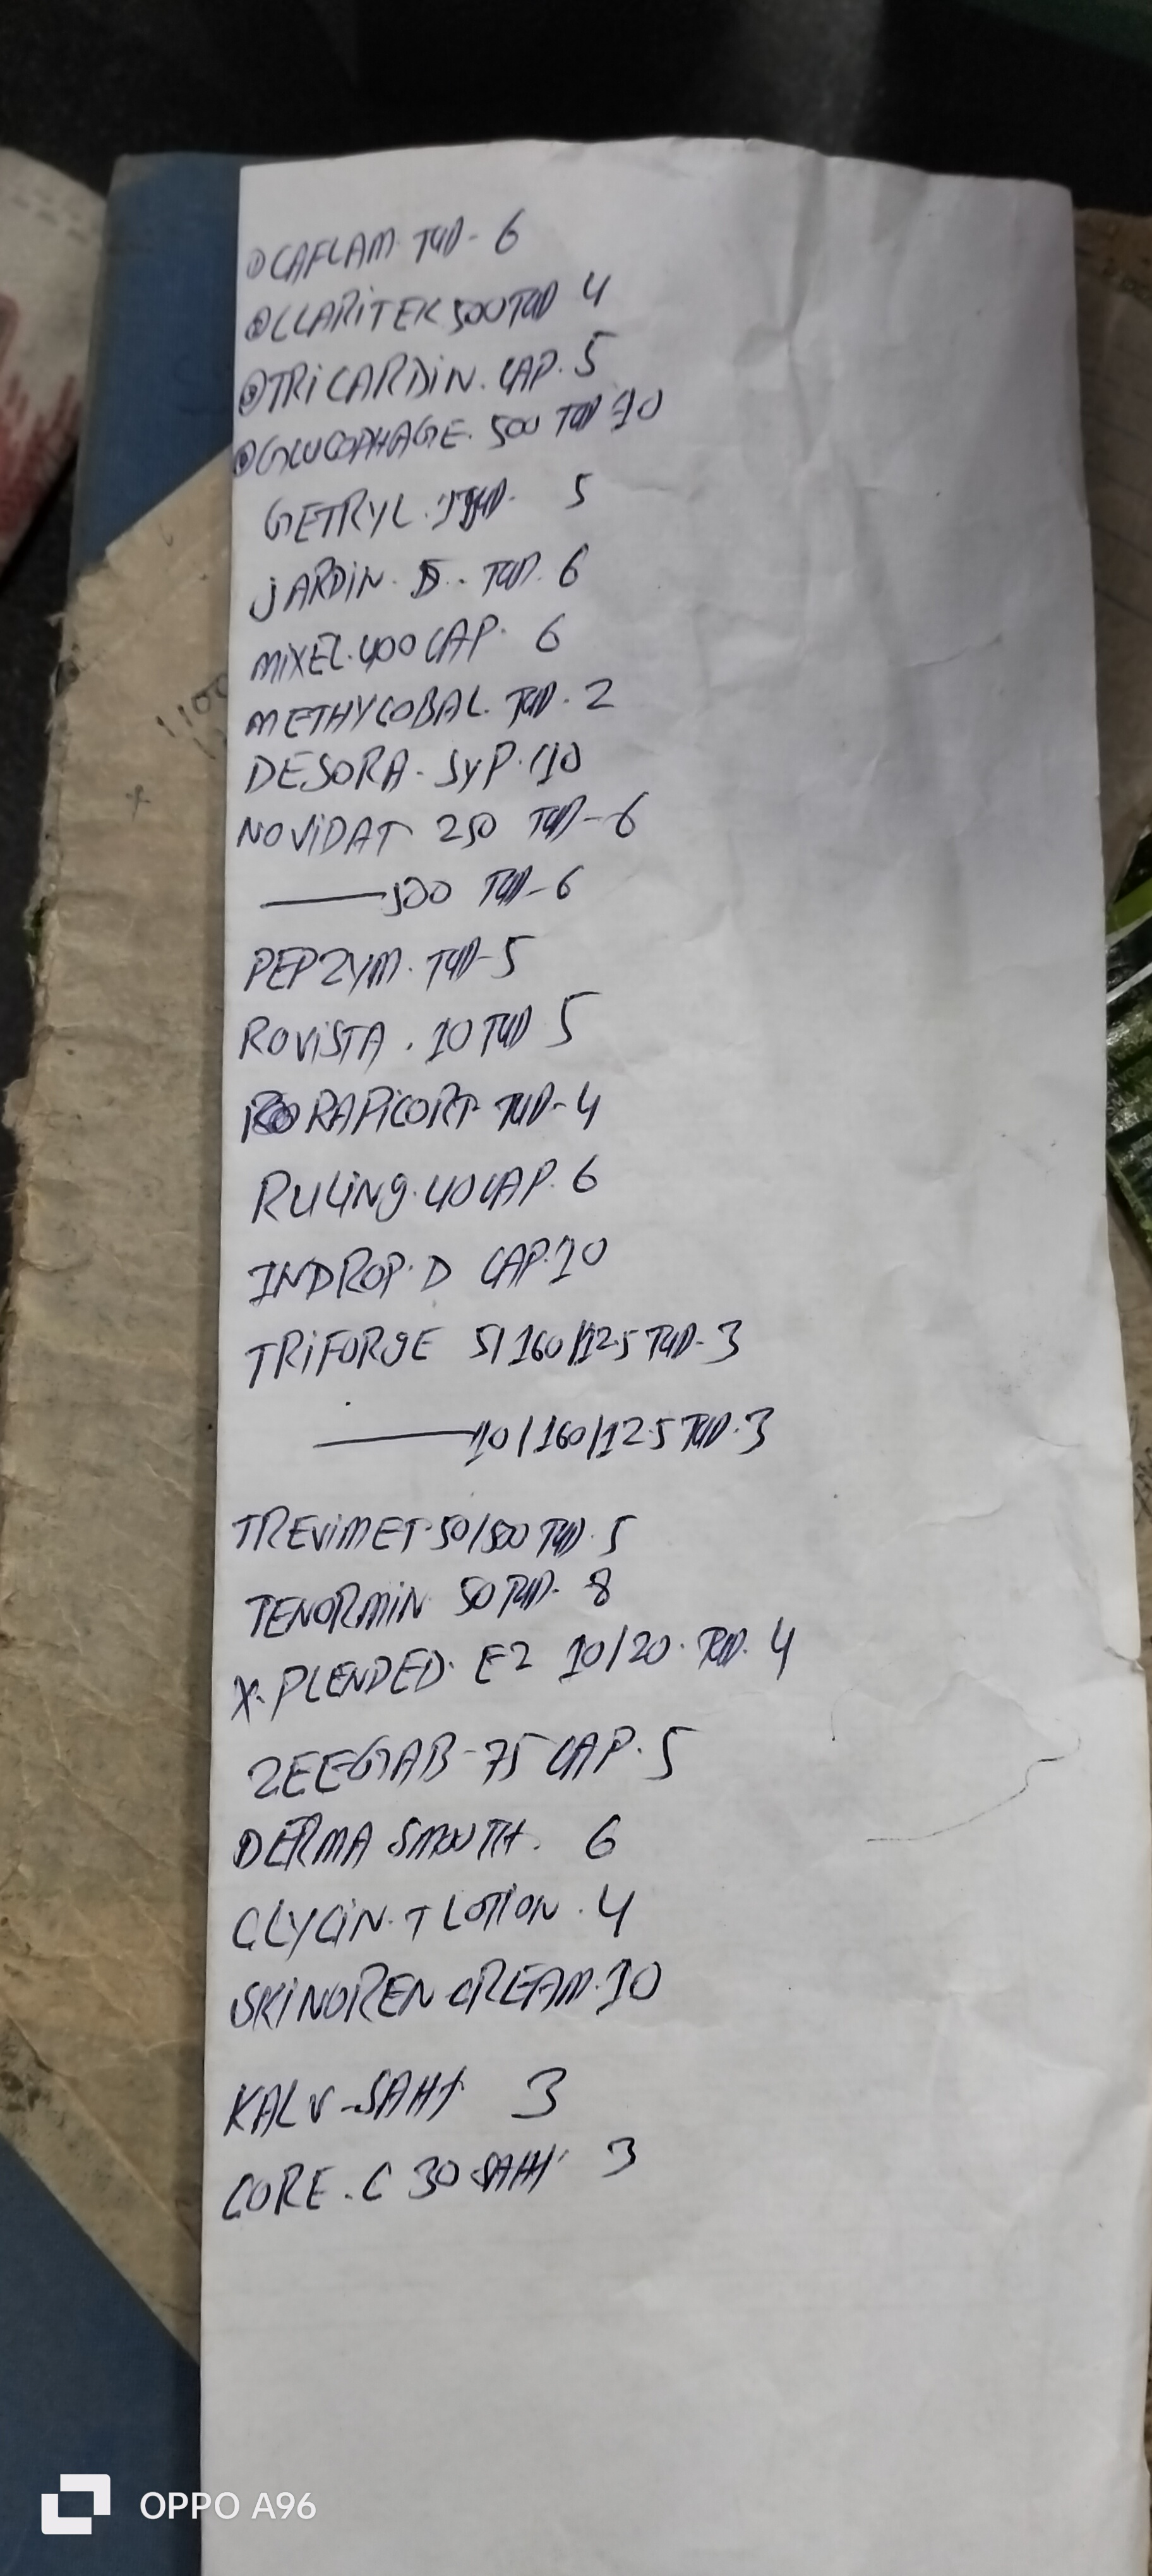 ① CAFLAM TAB - 6
② CLARITEK 500 TAB 4
③ TRICARDIN. CAP. 5
④ GLUCOPHAGE. 500 TAB 10
GETRYL. TAB. 5
JARDIN. D. TAB. 6
MIXEL. 400 CAP. 6
METHYCOBAL. TAB. 2
DESORA - SYP. 10
NOVIDAT 250 TAB - 6
——— 500 TAB - 6
PEPZYM. TAB - 5
ROVISTA. 10 TAB 5
RAPICORT TAB - 4
RULiNg. 40 CAP. 6
INDROP. D CAP. 10
TRiFORgE 5/160/12.5 TAB - 3
——— 10/160/12.5 TAB. 3
TREViMET 50/500 TAB. 5
TENORMiN 50 TAB - 8
X. PLENDED. EZ 10/20. TAB. 4
ZEEGAB - 75 CAP. 5
DERMA SMOOTH. 6
CLYCiN. T LOTION. 4
SKiNOREN CREAM. 10
KALV - SAHt 3
CORE. C 30 SAHt 3
OPPO A96